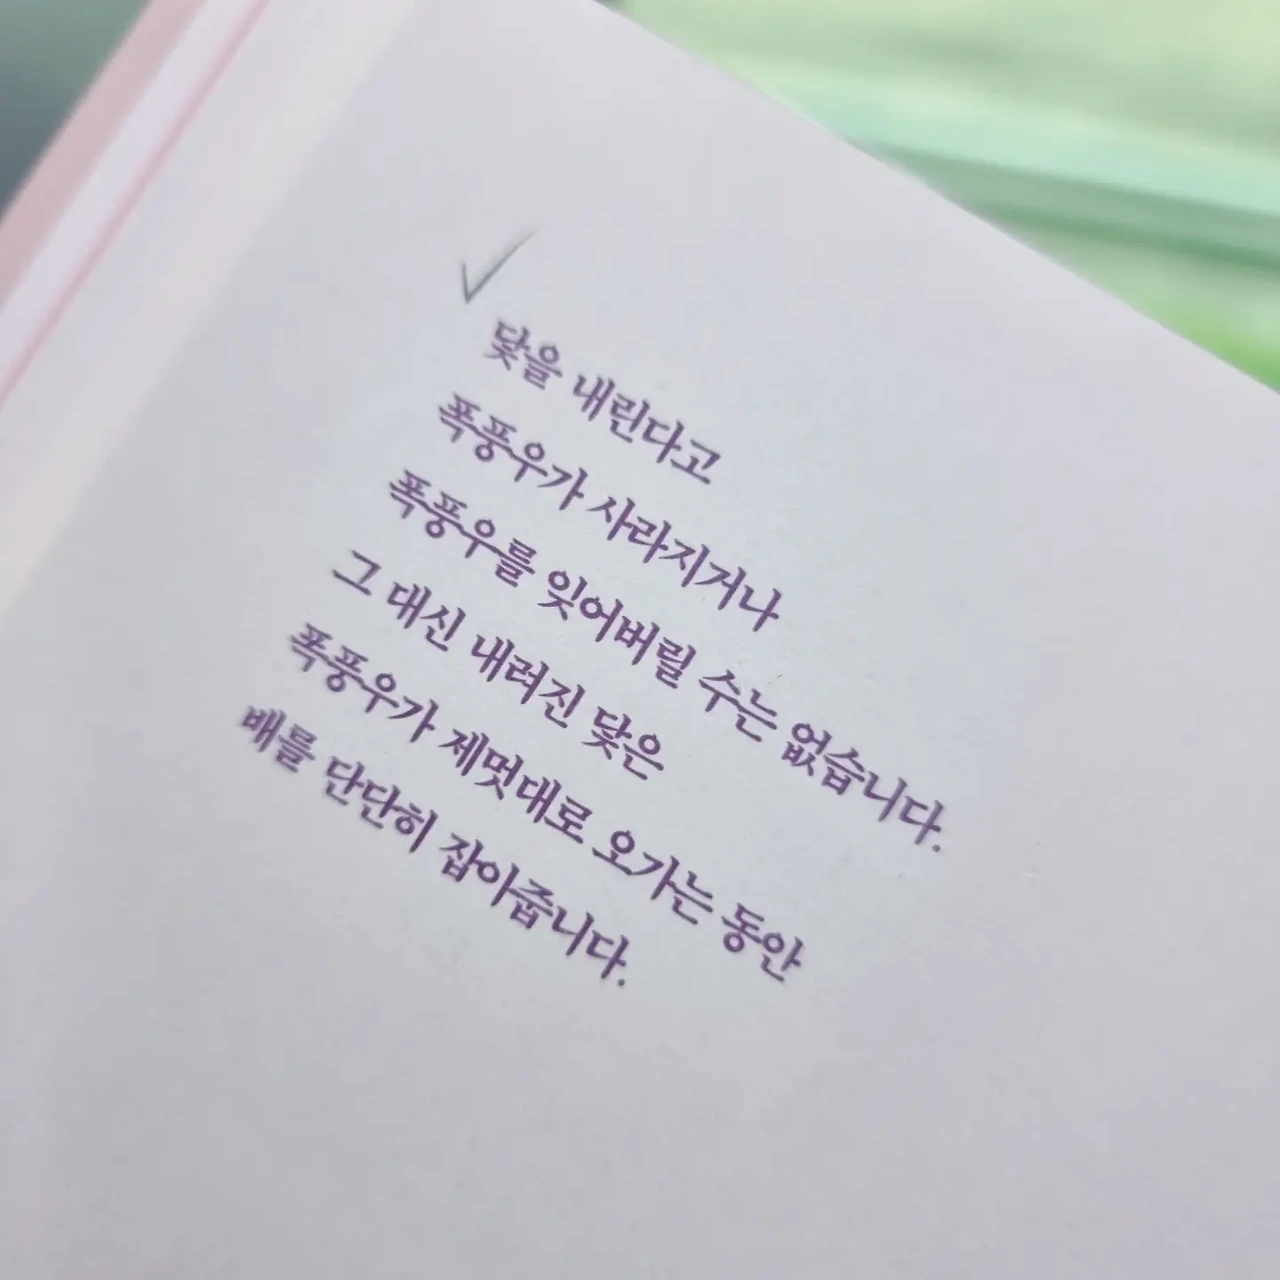 닻을 내린다고
폭풍우가 사라지거나
폭풍우를 잊어버릴 수는 없습니다.
그 대신 내려진 닻은
폭풍우가 제멋대로 오가는 동안
배를 단단히 잡아줍니다.